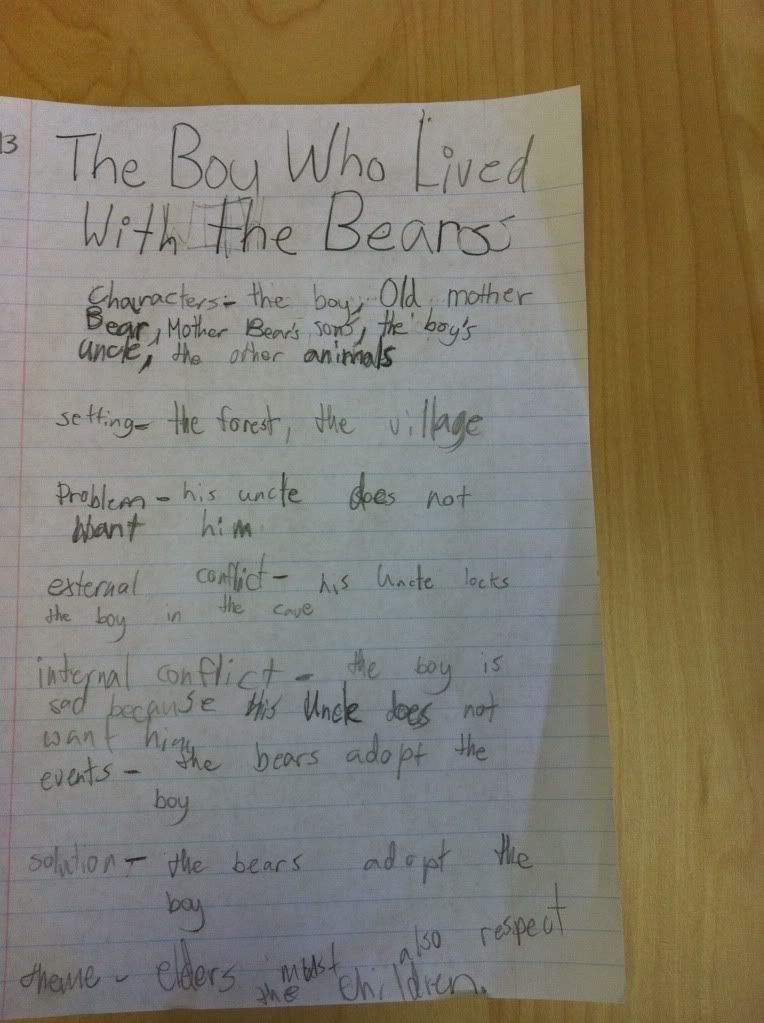 13
The Boy Who Lived
With the Bears
Characters- the boy, Old mother
Bear, Mother Bear's sons, the boy's
uncle, the other animals
setting- the forest, the village
Problem- his uncle does not
want him
external conflict- his Uncle locks
the boy in the cave
internal conflict- the boy is
sad because his Uncle does not
want him
events- the bears adopt the
boy
solution- the bears adopt the
boy
theme- elders must also respect
the children.